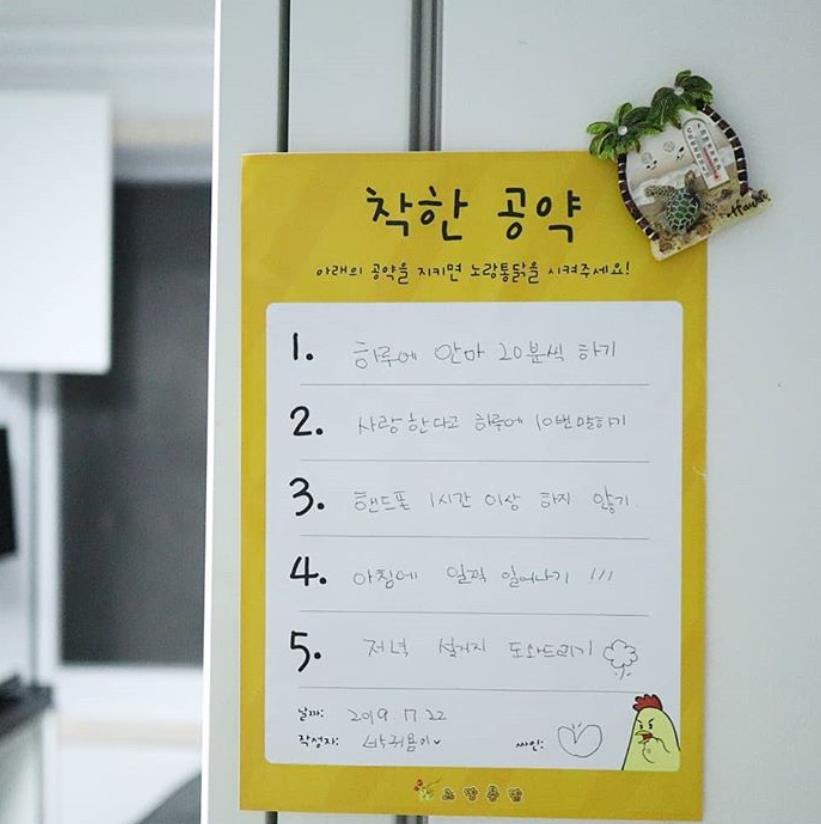 착한 공약
아래의 공약을 지키면 노랑통닭을 시켜주세요!
1. 하루에 안마 20분씩 하기
2. 사랑한다고 하루에 10번 말하기
3. 핸드폰 1시간 이상 하지 않기
4. 아침에 일찍 일어나기 !!!
5. 저녁 설거지 도와드리기
날짜: 2019. 22
작성자: 싸인:
노랑통닭
Hawaii